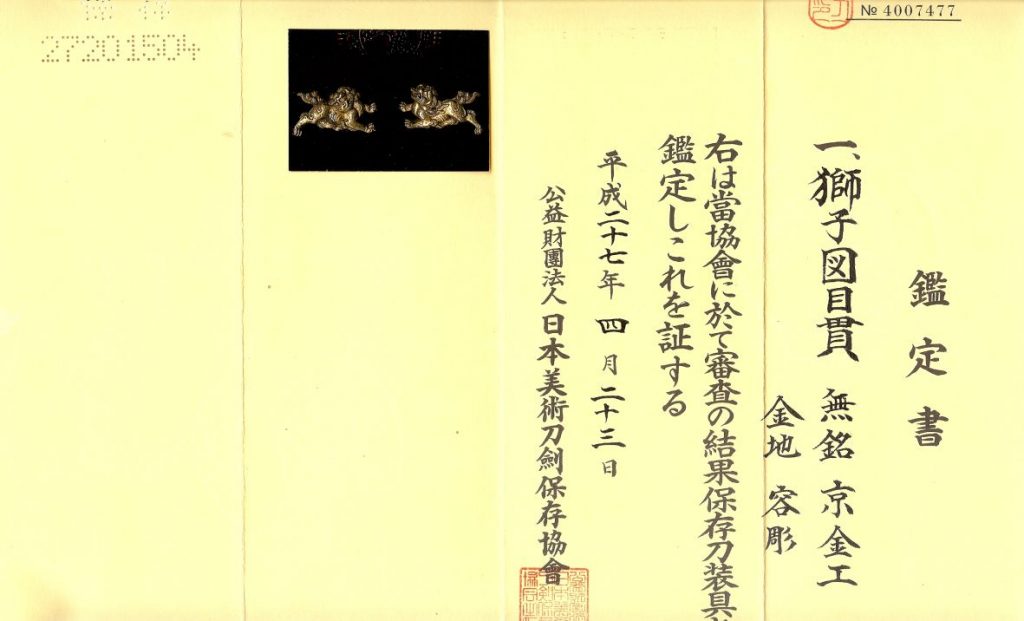 № 4007477
鑑定書
一、獅子図目貫 無銘 京金工
金地 容彫
右は當協會に於て審査の結果保存刀装具と
鑑定しこれを証する
平成二十七年 四月二十三日
公益財團法人 日本美術刀劍保存協會
27201504